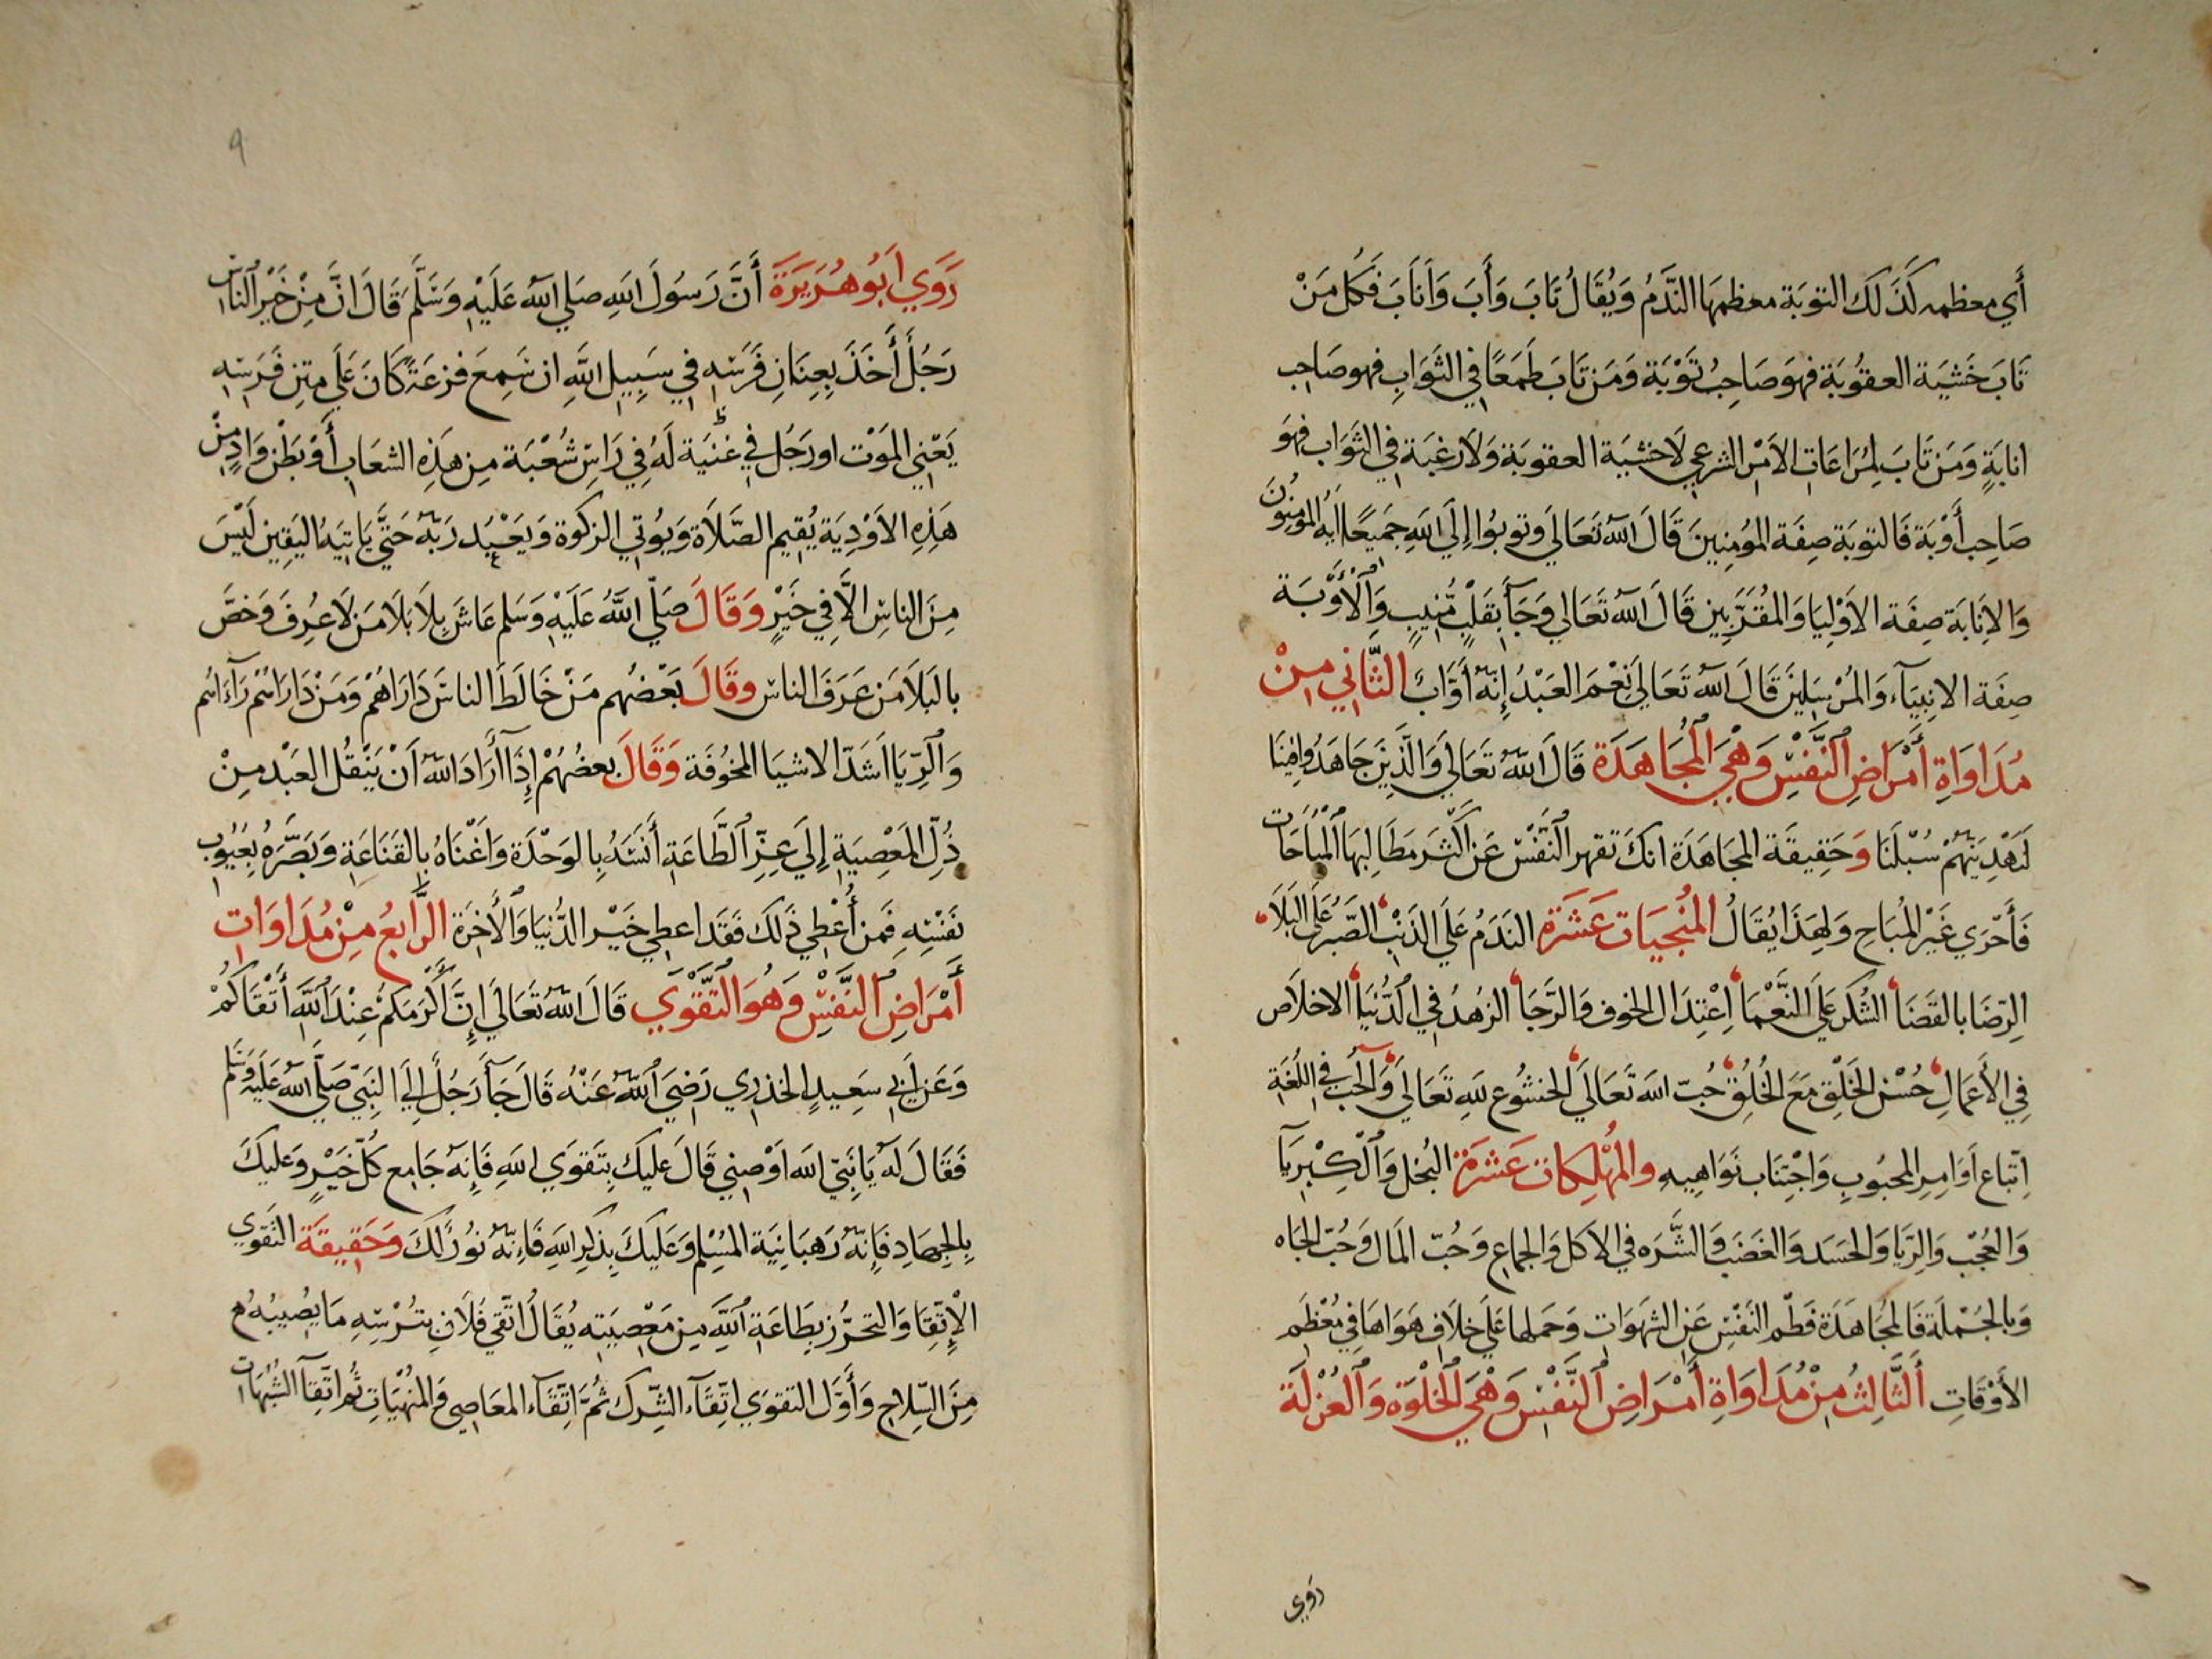 أَي معظمه كَذَلك التوبَة معظمهَا النَّدَمُ وَيُقَالُ تَابَ وَأَبَ وَأَنَابَ فَكُل مَنْ
تَابَ خَشيَة العقُوبَة فهوَ صَاحِبُ تَوْبَة وَمَن تَابَ طَمَعًا في الثَوَابِ فهو صَاحِب
انابَةٍ وَمَن تَابَ لِمُرَاعَات الاَمْر الشرعي لَا خشيَة العقوبَة وَلَا رغبَة في الثوَاب فهوَ
صَاحِب أَوْبَة فَالتوبَة صِفَة المُومِنِينَ قَالَ اللهُ تَعَالَي وتوبُوا إِلَي اللهِ جَميعًا ايه المُومِنُونَ
وَالاِنَابَة صِفَة الاَوْلِيَا وَالمُقَرَّبِين قَالَ اللهُ تَعَالي وَجَآ بِقَلْبٍ مُّنِيبٍ وَالْأَوْبَة
صِفَة الانبِيَآء وَالمُرْسِلينَ قَالَ اللهُ تَعَالي نِعْمَ العَبْدُ إِنَّهُ أَوَّابٌ الثَّانِي مِنْ
مُدَاوَاةِ أَمْرَاضِ النَّفْسِ وَهْيَ الْمُجَاهَدَة قَالَ اللهُ تَعَالَي وَالَّذِينَ جَاهَدُوا فِينَا
لَنَهْدِيَنَّهُمْ سُبُلَنَا وَحَقِيقَة المجَاهَدَة انكَ تقهر النَّفْسَ عَن أَكْثَر مَطَالِبهَا الْمُبَاحَات
فَأَحْرَي غَيْرَ الْمُبَاح وَلِهَذَا يُقَالُ المُنْجِيَات عَشَرَة النَدَمُ عَلَي الذَنْب الصَّبْرُ عَلَي البَلَا
الرِّضَا بالقَضَا الشُكر عَلَي النَّعْمَا اِعْتِدَال الخوف وَالرَّجَا الزهُدُ في الدُّنْيَا الاخلَاص
في الأَعمَالِ حُسْن الخَلْقِ مَعَ الخُلُقِ حُبّ الله تَعَالَي الخشُوع للهِ تَعَالَي وَالْحُب في اللُّغَة
اِتّبَاع أَوَامِرِ المحبُوبِ وَاجْتِنَاب نَوَاهِيهِ والمُهْلِكَات عَشَرَة البُخل وَالْكِبْرِيَا
وَالعُجْب وَالرِّيَا وَالحسَد وَالغَضَب وَالشَّرَه في الاكل وَالجِمَاع وَحُبّ المَال وَحُبّ الجَاه
وَبالجُمْلَة فَالمُجَاهَدَة فَطْم النَفْس عَن الشهَوَات وَحَملهَا عَلَي خلَاف هَوَاهَا في مُعْظَم
الأَوْقَاتِ أَلثَّالِثُ مِنْ مُدَاوَاةِ أَمْرَاضِ النَّفْس وَهْيَ الْخلْوَة وَالْعُزْلَة
رَوَي
٩
رَوَي أَبُو هُرَيرَة أَنَّ رَسُولَ اللهِ صَلي اللهُ عَلَيْهِ وَسَلَّمَ قَالَ انَّ مِنْ خَيْر النَّاس
رَجُلٌ أَخَذَ بِعِنَانِ فَرَسِهِ في سَبِيلِ اللهِ ان سَمِعَ فزعَةً كَانَ عَلَي متن فَرَسِهِ
يَعْنِي المَوْت او رَجُل في غنيَة لَهُ في رَاس شُعْبَة مِن هَذِهِ الشعَاب أَوْ بَطْن وَادٍ مِنْ
هَذِهِ الاَوْدِيَة يُقِيم الصَّلَاة وَيُوتي الزكوة وَيَعْبُد رَبّهُ حَتَّي يَاتيَهُ اليَقِين لَيْسَ
مِنَ الناسِ الَّا في خَيْرٍ وَقَالَ صَلّي اللهُ عَلَيْهِ وَسَلم عَاشَ بِلَا بَلَا مَن لَا عُرِفَ وَخصَّ
بالبَلَا مَن عَرَفَ الناس وقَالَ بَعْضُهم مَنْ خَالَطَ الناسَ دَارَاهُمْ وَمَنْ دَارَاهُمْ رَآءَاهُم
وَالرِّيَا اشَدّ الاشيَا المخُوفَة وَقَالَ بعضُهُمْ إِذَا أَرَادَ اللهُ أَنْ يَنْقُل العَبْد مِنْ
ذُلّ المَعْصِيَةِ إِلَي عِزِّ الطَّاعَةِ أَنَسَهُ بِالوَحْدَة وَاغْنَاهُ بِالقَنَاعَةِ وَبَصَّرَهُ بِعُيُوب
نَفْسِهِ فَمن أُعْطِي ذَلكَ فَقَد اعطِي خَيْر الدُّنيَا وَالأَخِرَة الرَّابعُ مِنْ مُدَاوَات
أَمْرَاضِ النَّفْسِ وَهُوَ التَّقْوَي قَالَ اللهُ تَعَالَي إِنَّ أَكْرَمَكُمْ عِنْدَ اللهِ أَتْقَاكُمْ
وَعَن اَبي سَعِيدٍ الخذري رَضِيَ اللهُ عَنْهُ قَالَ جَآءَ رَجُلٌ إِلَي النَّبِيّ صَلَّي اللهُ عَلَيْهِ وَسَلم
فَقَالَ لَهُ يَا نَبِيّ الله أَوْصِنِي قَالَ عَليكَ بِتَقوَي اللهِ فَإِنّهُ جَامِع كُلّ خَيْرٍ وَعَليكَ
بِالجِهَادِ فَإِنّهُ رَهبَانِيَة المُسْلِم وَعَلَيكَ بِذكرِ اللهِ فَاِنّهُ نُورٌ لَكَ وَحَقِيقَة التقوَي
الْإِتّقَا وَالتحرُّز بِطَاعَةِ اللهِ مِن مَعْصِيَتِه يُقَالُ اتَّقي فُلَان بتُرْسِهِ مَا يصُيبُهُ
مِنَ السِّلاح وَأَوَّل التقوَي اتّقَآء الشِّرك ثُمَّ اتّقَآء المعَاصي وَالمنْهيَاتِ ثُم اتّقآ الشبُهَات